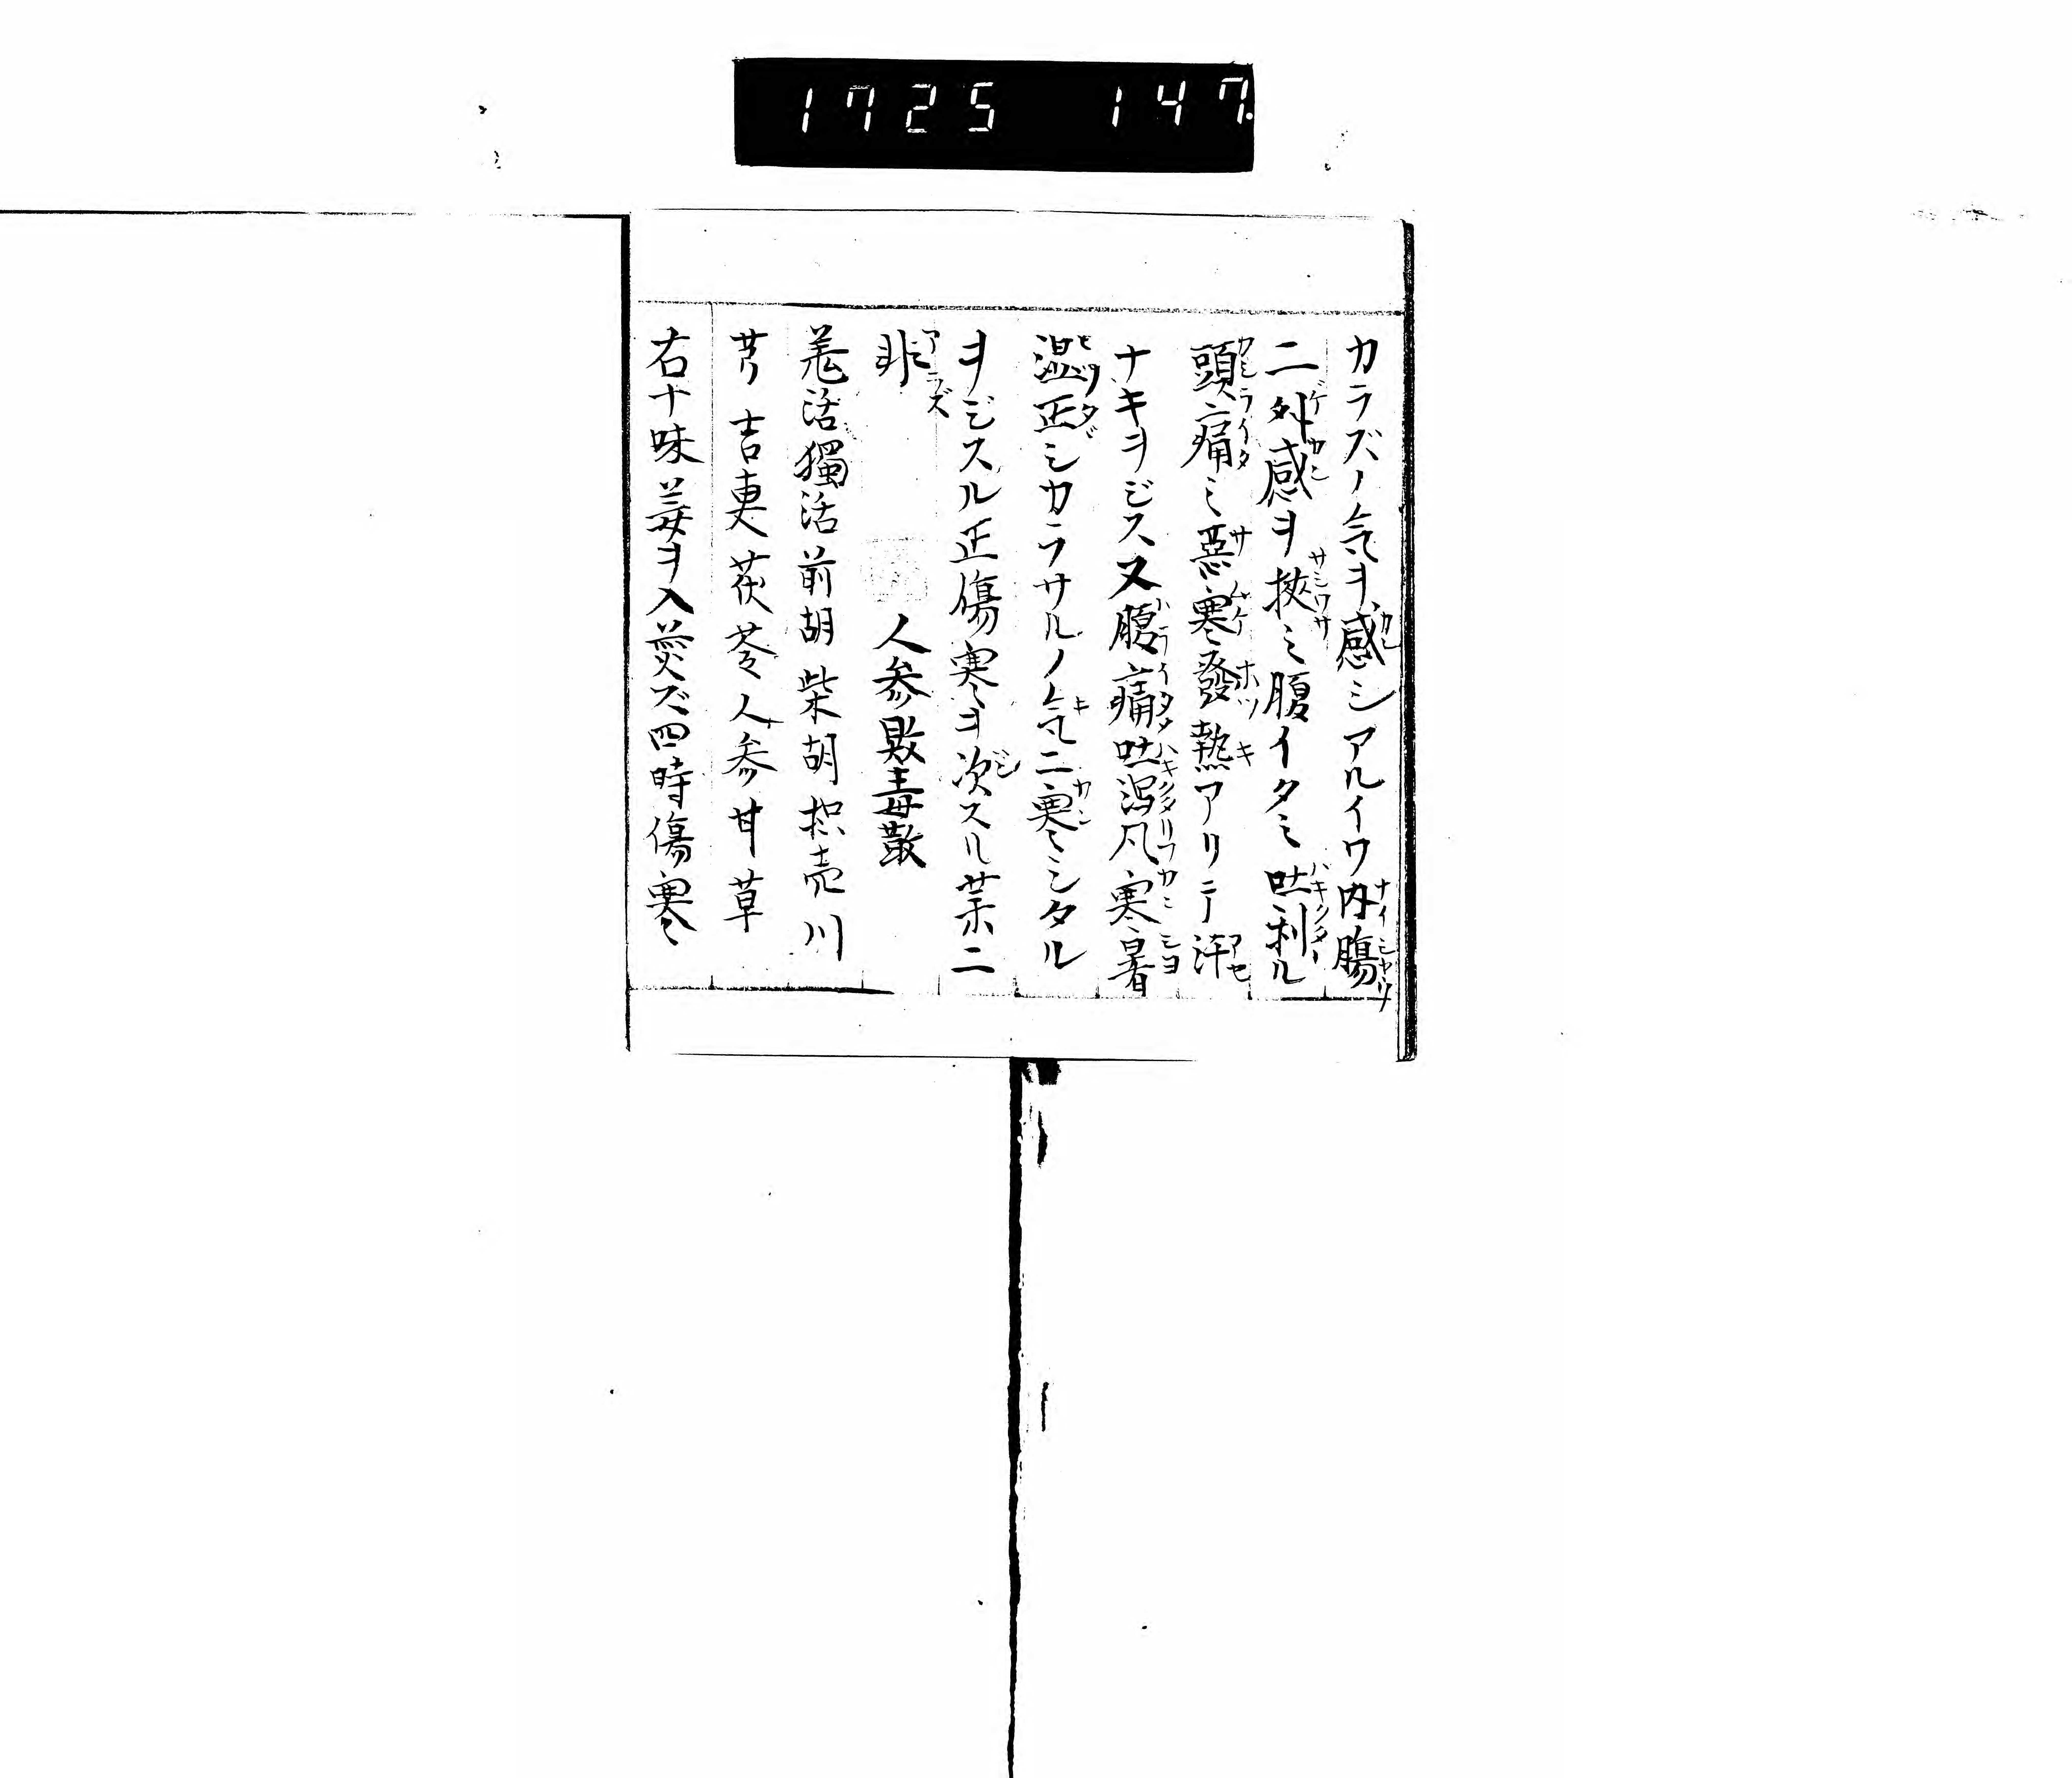 1725 147.
カラズノ気ヲ感シアルイワ内腸
ニ外感ヲ挾ミ腹イタミ吐利ル
頭痛ミ惡寒発熱アリテ汗
ナキヲジス又腹痛吐瀉凡寒暑
湿正シカラサルノ気ニ寒ミシタル
ヲジスル正傷寒ヲ次スル薬ニ
非
人参敗毒散
羗活獨活前胡柴胡枳売川
芎吉更茯苓人参甘草
右十味姜ヲ入煎ズ四時傷寒